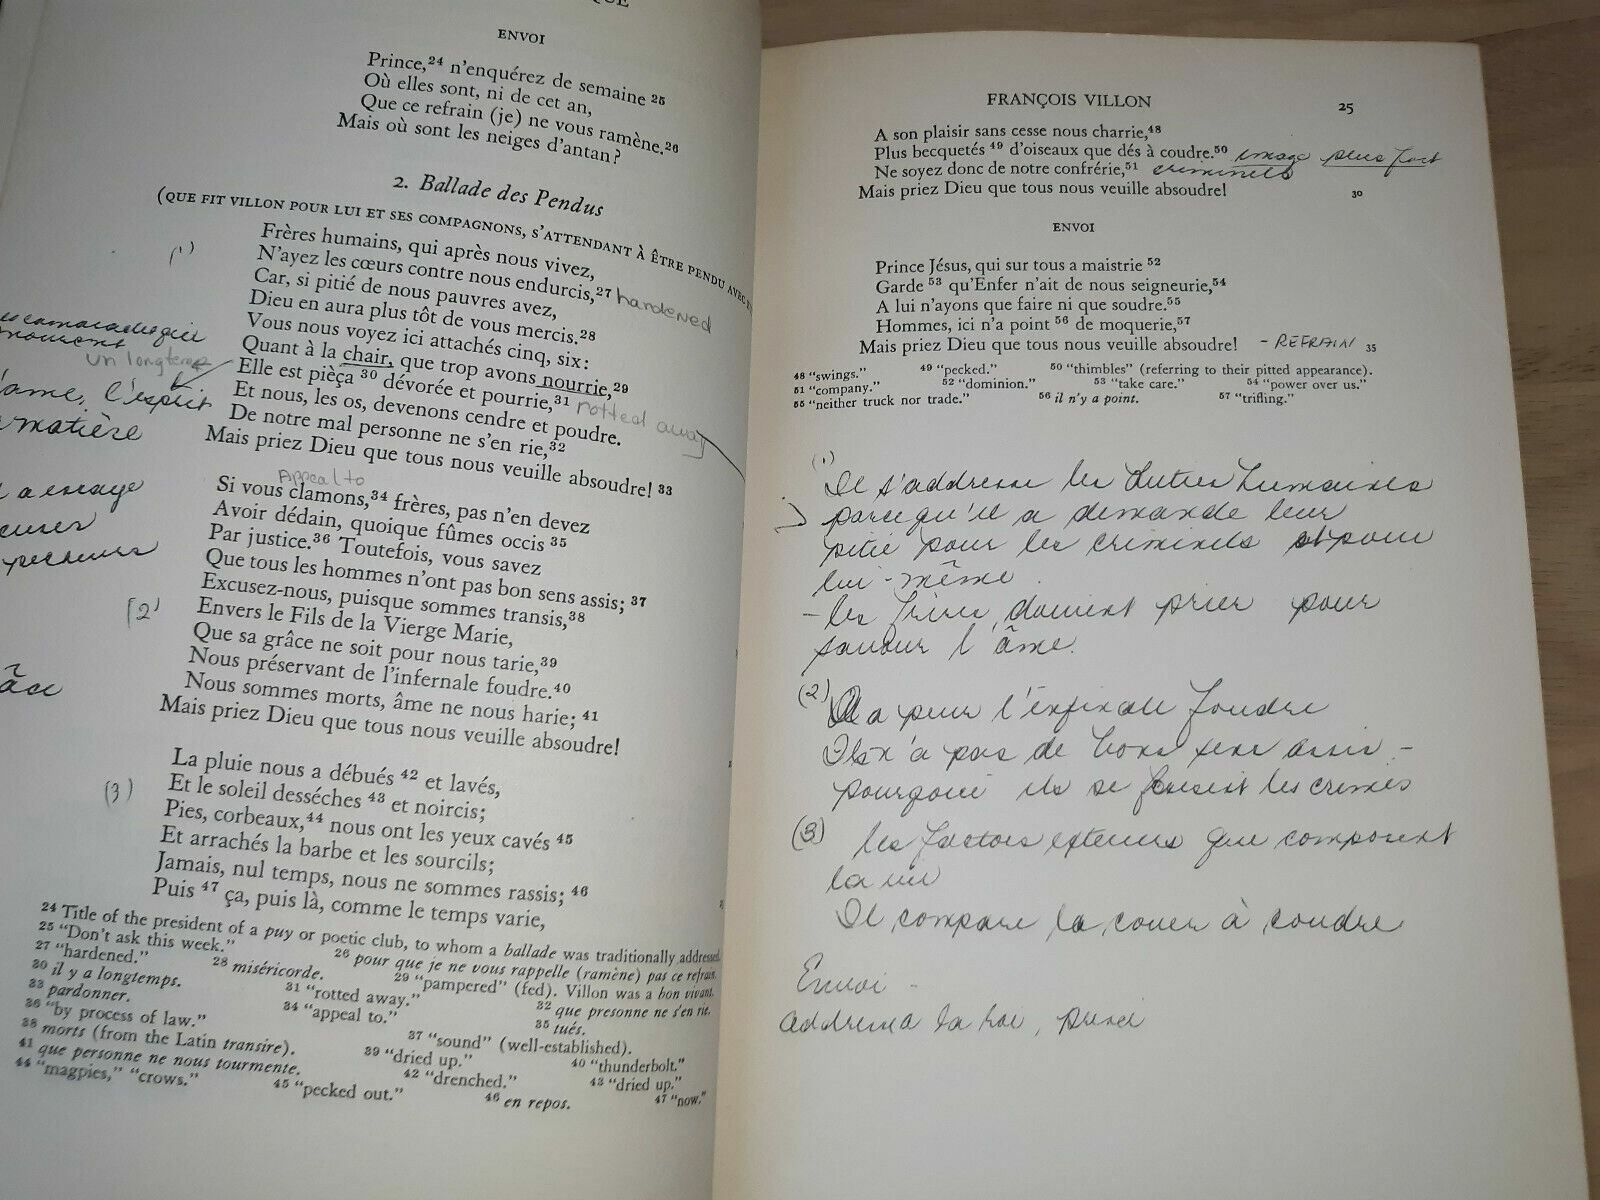 QUE
ENVOI
Prince,24 n'enquérez de semaine 25
Où elles sont, ni de cet an,
Que ce refrain (je) ne vous ramène.26
Mais où sont les neiges d'antan?
2. Ballade des Pendus
(QUE FIT VILLON POUR LUI ET SES COMPAGNONS, S'ATTENDANT À ÊTRE PENDU AVEC
(1)
Frères humains, qui après nous vivez,
N'ayez les cœurs contre nous endurcis,27 hardened
Car, si pitié de nous pauvres avez,
Dieu en aura plus tôt de vous mercis.28
Vous nous voyez ici attachés cinq, six:
Quant à la chair, que trop avons nourrie,29
un longtemps
Elle est pièça 30 dévorée et pourrie,31 rotted away
Et nous, les os, devenons cendre et poudre.
De notre mal personne ne s'en rie,32
Mais priez Dieu que tous nous veuille absoudre! 33
l'âme, l'esprit
matière
Appeal to
Si vous clamons,34 frères, pas n'en devez
Avoir dédain, quoique fûmes occis 35
Par justice.36 Toutefois, vous savez
Que tous les hommes n'ont pas bon sens assis; 37
Excusez-nous, puisque sommes transis,38
(2)
Envers le Fils de la Vierge Marie,
Que sa grâce ne soit pour nous tarie,39
Nous préservant de l'infernale foudre.40
Nous sommes morts, âme ne nous harie; 41
Mais priez Dieu que tous nous veuille absoudre!
La pluie nous a débués 42 et lavés,
(3)
Et le soleil desséches 43 et noircis;
Pies, corbeaux,44 nous ont les yeux cavés 45
Et arrachés la barbe et les sourcils;
Jamais, nul temps, nous ne sommes rassis; 46
Puis 47 ça, puis là, comme le temps varie,
24 Title of the president of a puy or poetic club, to whom a ballade was traditionally addressed.
25 "Don't ask this week." 26 pour que je ne vous rappelle (ramène) pas ce refrain.
27 "hardened." 28 miséricorde. 29 "pampered" (fed). Villon was a bon vivant.
30 il y a longtemps. 31 "rotted away." 32 que presonne ne s'en rie.
33 pardonner. 34 "appeal to." 35 tués.
36 "by process of law." 37 "sound" (well-established).
38 morts (from the Latin transire). 39 "dried up." 40 "thunderbolt."
41 que personne ne nous tourmente. 42 "drenched." 43 "dried up."
44 "magpies," "crows." 45 "pecked out." 46 en repos. 47 "now."
FRANÇOIS VILLON 25
A son plaisir sans cesse nous charrie,48
Plus becquetés 49 d'oiseaux que dés à coudre.50 image plus fort
Ne soyez donc de notre confrérie,51 criminels
Mais priez Dieu que tous nous veuille absoudre! 30
ENVOI
Prince Jésus, qui sur tous a maistrie 52
Garde 53 qu'Enfer n'ait de nous seigneurie,54
A lui n'ayons que faire ni que soudre.55
Hommes, ici n'a point 56 de moquerie,57
Mais priez Dieu que tous nous veuille absoudre! - REFRAIN 35
48 "swings." 49 "pecked." 50 "thimbles" (referring to their pitted appearance).
51 "company." 52 "dominion." 53 "take care." 54 "power over us."
55 "neither truck nor trade." 56 il n'y a point. 57 "trifling."
(1)
Il s'addresse les autres humaines
parcequ'il a demande leur
pitié pour les criminels et pour
lui-même.
- les frères doivent prier pour
sauver l'âme.
(2) Il a peur l'enfinale foudre
Ils n'a pas de bons sens assis -
pourquoi ils se les crimes
(3) les factors exterieurs que composent
la vie
Il compare la à coudre
Envoi -
la